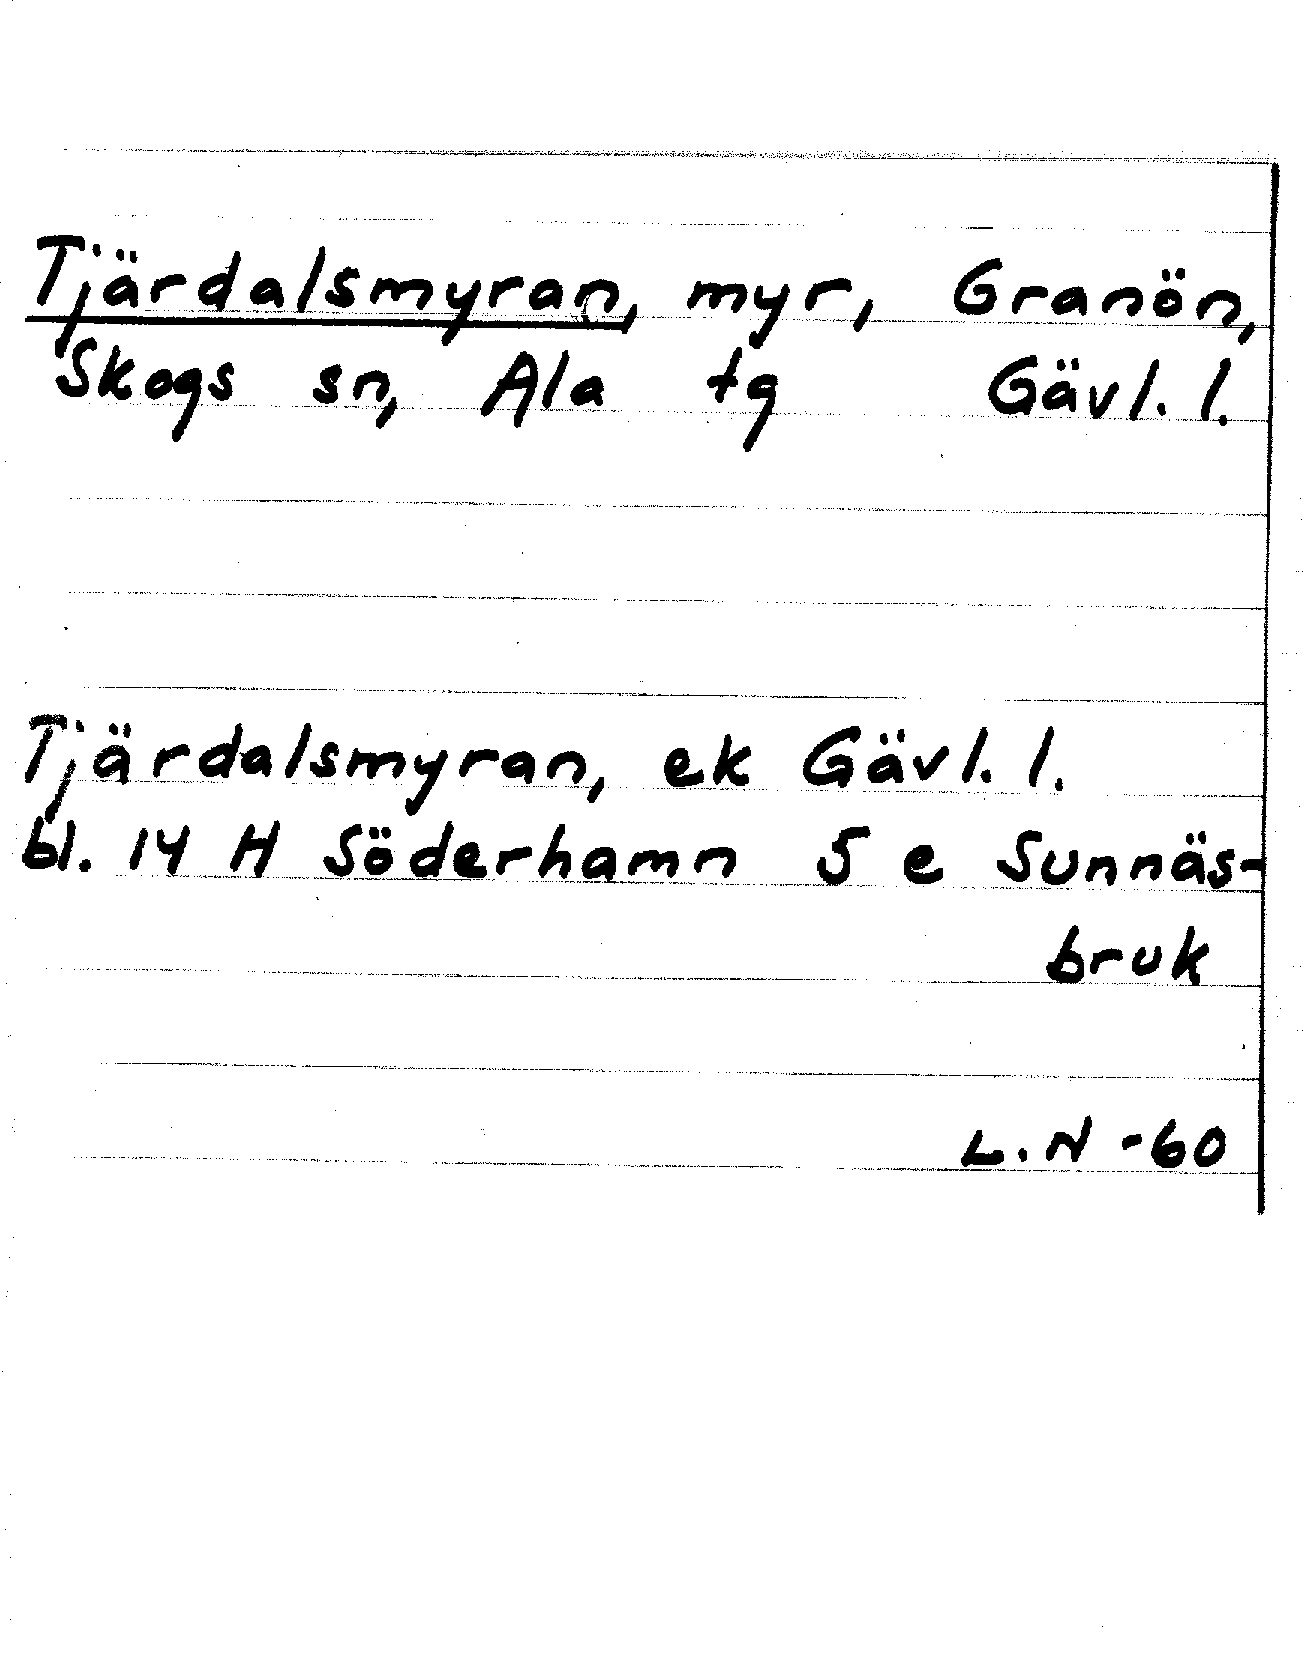 Tjärdalsmyran, myr, Granön,
Skogs sn, Ala tg Gävl. l.
Tjärdalsmyran, ek Gävl. l.
bl. 14 H Söderhamn 5 e Sunnäs-
bruk
L.N -60